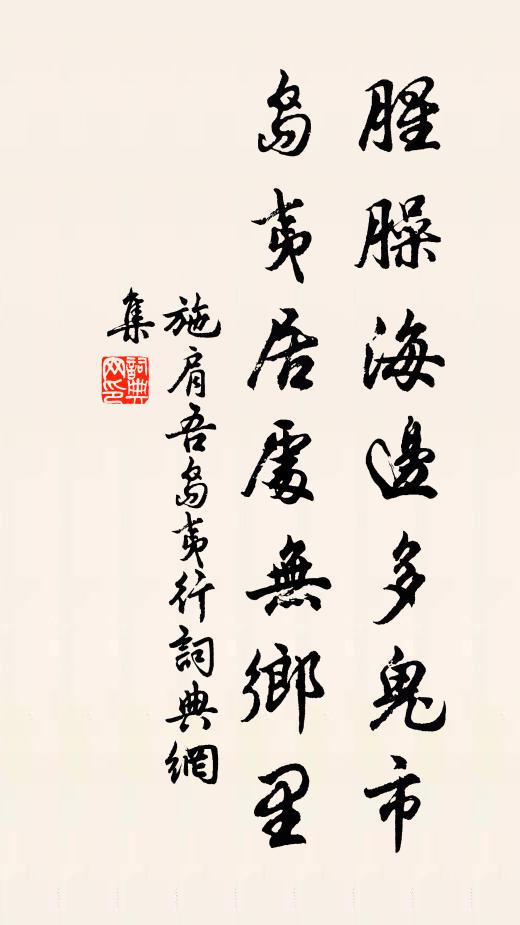 腥臊海邊多鬼市
島夷居處無鄉里
施肩吾島夷行詞典網
集
詞典
网印